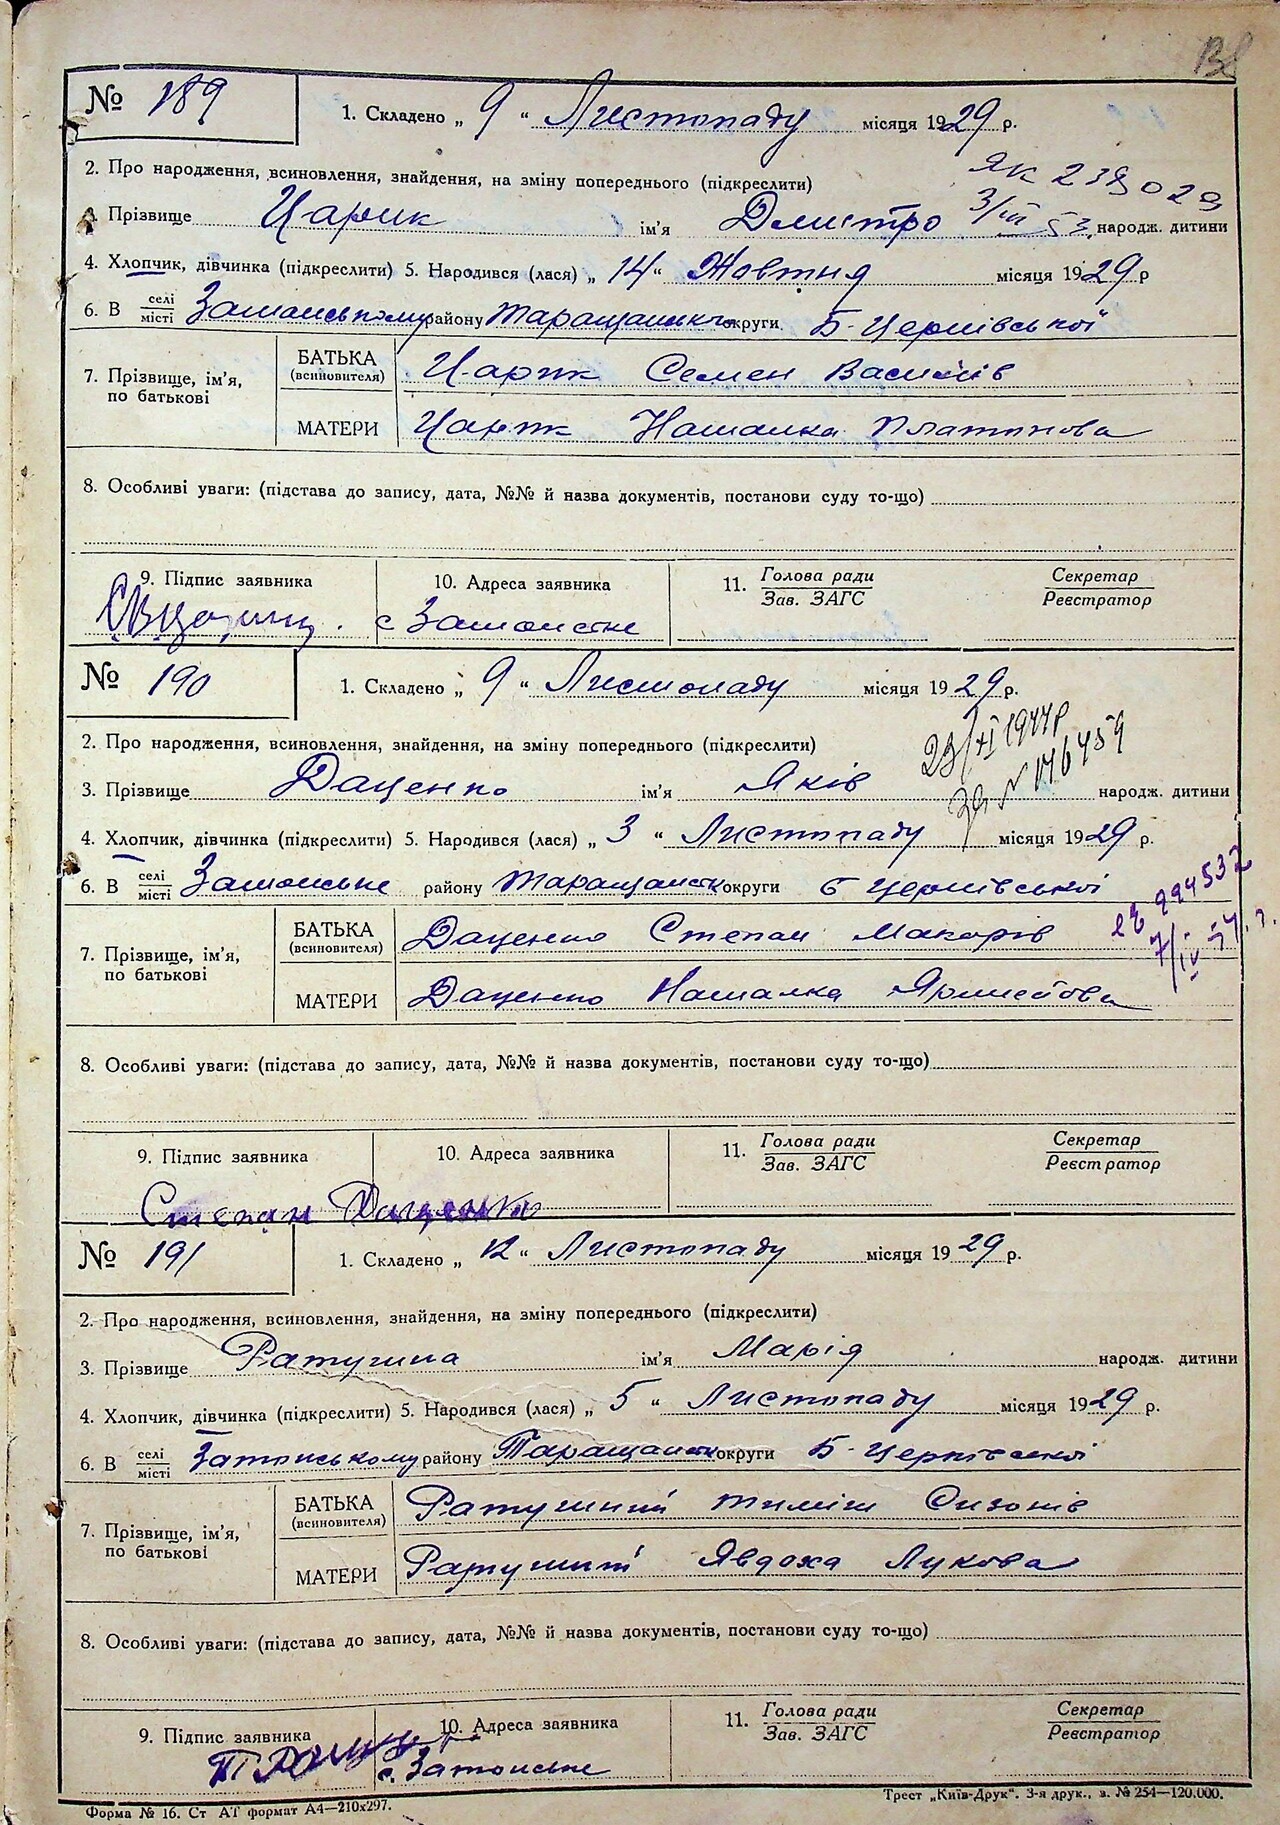 № 189
1. Складено „ 9 “ Листопаду місяця 1929 р.
2. Про народження, всиновлення, знайдення, на зміну попереднього (підкреслити)
ЯК 239029
3/III 53
3. Прізвище Царик ім'я Дмитро народж. дитини
4. Хлопчик, дівчинка (підкреслити) 5. Народився (лася) „ 14 “ Жовтня місяця 1929 р
6. В селі / місті району округи Б-Церківської
7. Прізвище, ім'я, по батькові
БАТЬКА (всиновителя) Царик Семен Василів
МАТЕРИ Царик Наталка Платонова
8. Особливі уваги: (підстава до запису, дата, №№ й назва документів, постанови суду то-що)
9. Підпис заявника
10. Адреса заявника с
11. Голова ради / Зав. ЗАГС
Секретар / Реєстратор
№ 190
1. Складено „ 9 “ Листопаду місяця 1929 р.
2. Про народження, всиновлення, знайдення, на зміну попереднього (підкреслити)
23/XI 1944р
№ 146459
3. Прізвище Даценко ім'я Яків народж. дитини
4. Хлопчик, дівчинка (підкреслити) 5. Народився (лася) „ 3 “ Листопаду місяця 1929 р.
6. В селі / місті району округи Б Церківської
994532
7/IV
7. Прізвище, ім'я, по батькові
БАТЬКА (всиновителя) Даценко Степан Макарів
МАТЕРИ Даценко Наталка
8. Особливі уваги: (підстава до запису, дата, №№ й назва документів, постанови суду то-що)
9. Підпис заявника
10. Адреса заявника
11. Голова ради / Зав. ЗАГС
Секретар / Реєстратор
Степан Даценко
№ 191
1. Складено „ 12 “ Листопаду місяця 1929 р.
2. Про народження, всиновлення, знайдення, на зміну попереднього (підкреслити)
3. Прізвище Ратушна ім'я Марія народж. дитини
4. Хлопчик, дівчинка (підкреслити) 5. Народився (лася) „ 5 “ Листопаду місяця 1929 р.
6. В селі / місті району округи Б-Церківської
7. Прізвище, ім'я, по батькові
БАТЬКА (всиновителя) Ратушний Тиміш
МАТЕРИ Ратушний Явдоха Лукова
8. Особливі уваги: (підстава до запису, дата, №№ й назва документів, постанови суду то-що)
9. Підпис заявника
10. Адреса заявника с.
11. Голова ради / Зав. ЗАГС
Секретар / Реєстратор
Форма № 16. Ст АТ формат А4—210х297.
Трест „Київ-Друк“. 3-я друк., з. № 254—120.000.